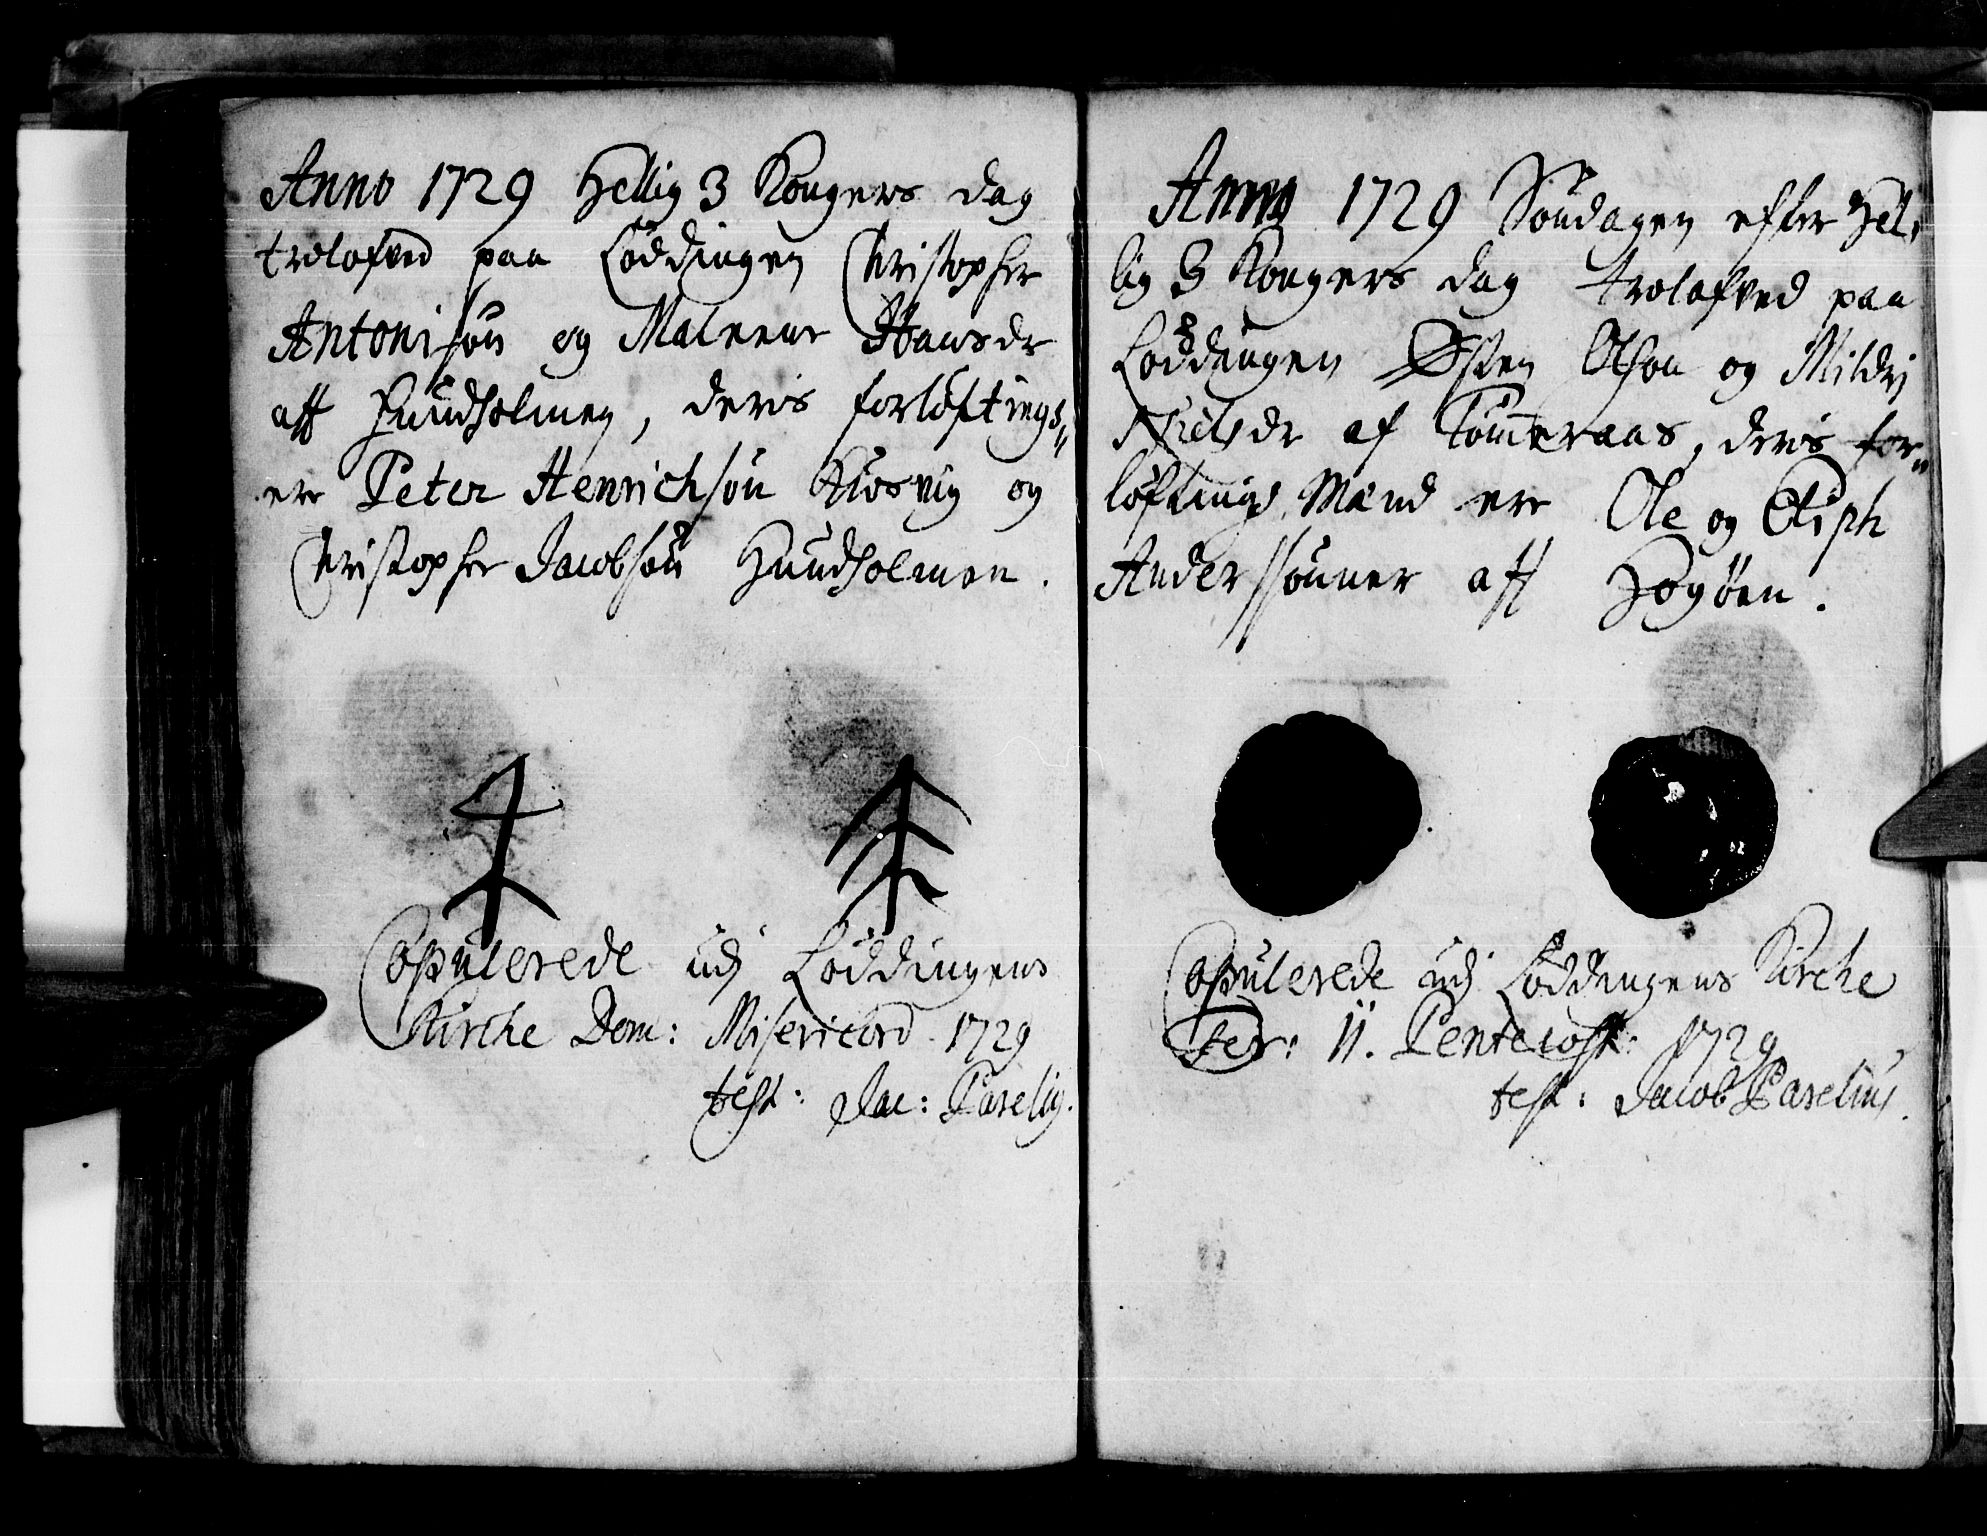 Anno 1729 Hellig 3 Kongers dag
trolofved paa Löddingen Christopher
Antonisön og Maleene Hansdr
aff Hundholmen, deris forlöftings„
ere Peter Henrichsön Kiosvig og
Christopher Jacobsön Hundholmen.
Copulerede udj Löddingens
Kirche Dom: Misericord. 1729
test: Jac: Parelig.
Anno 1729 Söndagen efter Hel„
lig 3 Kongers dag trolofved paa
Löddingen Østen Olson og Mildrj
Nielsdr af Tömeraas, deris for„
löftings Mænd ere Ole og Eliph
Anderssönner aff Hogöen.
Copulerede udj Löddingens Kirche
Fer: II. Pentecost: 1729
test: Jacob Parelius.